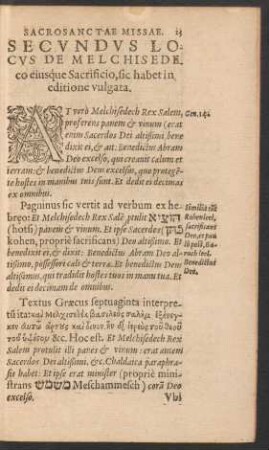 SACROSANCTAE MISSAE. 13
SECVNDVS LO-
CVS DE MELCHISEDE-
co eiusque Sacrificio, sic habet in
editione vulgata.
AT verò Melchisedech Rex Salem,
proferens panem & vinum (erat
enim Sacerdos Dei altissimi) bene
dixit ei, & ait. Benedictus Abram
Deo excelso, qui creauit cælum et
terram: & benedictus Deus excelsus, quo protegē-
te hostes in manibus tuis sunt. Et dedit ei decimas
ex omnibus.
Gen. 14.
Pagninus sic vertit ad verbum ex he-
bręo: Et Melchisedech Rex Salē ptulit הוציא
(hotsi) panem & vinum. Et ipse Sacerdos (כהן
kohen, propriè sacrificans) Deo altissimo. Et
benedixit ei, & dixit: Benedictus Abram Deo al-
tissimo, possessori cæli & terræ. Et benedictus Deus
altissimus, qui tradidit hostes tuos in manu tua. Et
dedit ei decimam de omnibus.
sacrificans
Deo,
Benedictus
Deo.
Textus Græcus septuaginta interpre-
tū ita: καὶ Μελχισεδὲκ βασιλεὺς σαλὴμ
ἄρτους καὶ οἶνον, ἦν δὲ ἱερεὺς τοῦ θεοῦ
τοῦ ὑψίστου &c. Hoc est. Et Melchisedech Rex
Salem protulit illi panes & vinum: erat autem
Sacerdos Dei altissimi. &c. Chaldaica paraphra-
sis habet: Et ipse erat minister (propriè mini-
strans משמש Meschammesch) corā Deo
excelso.